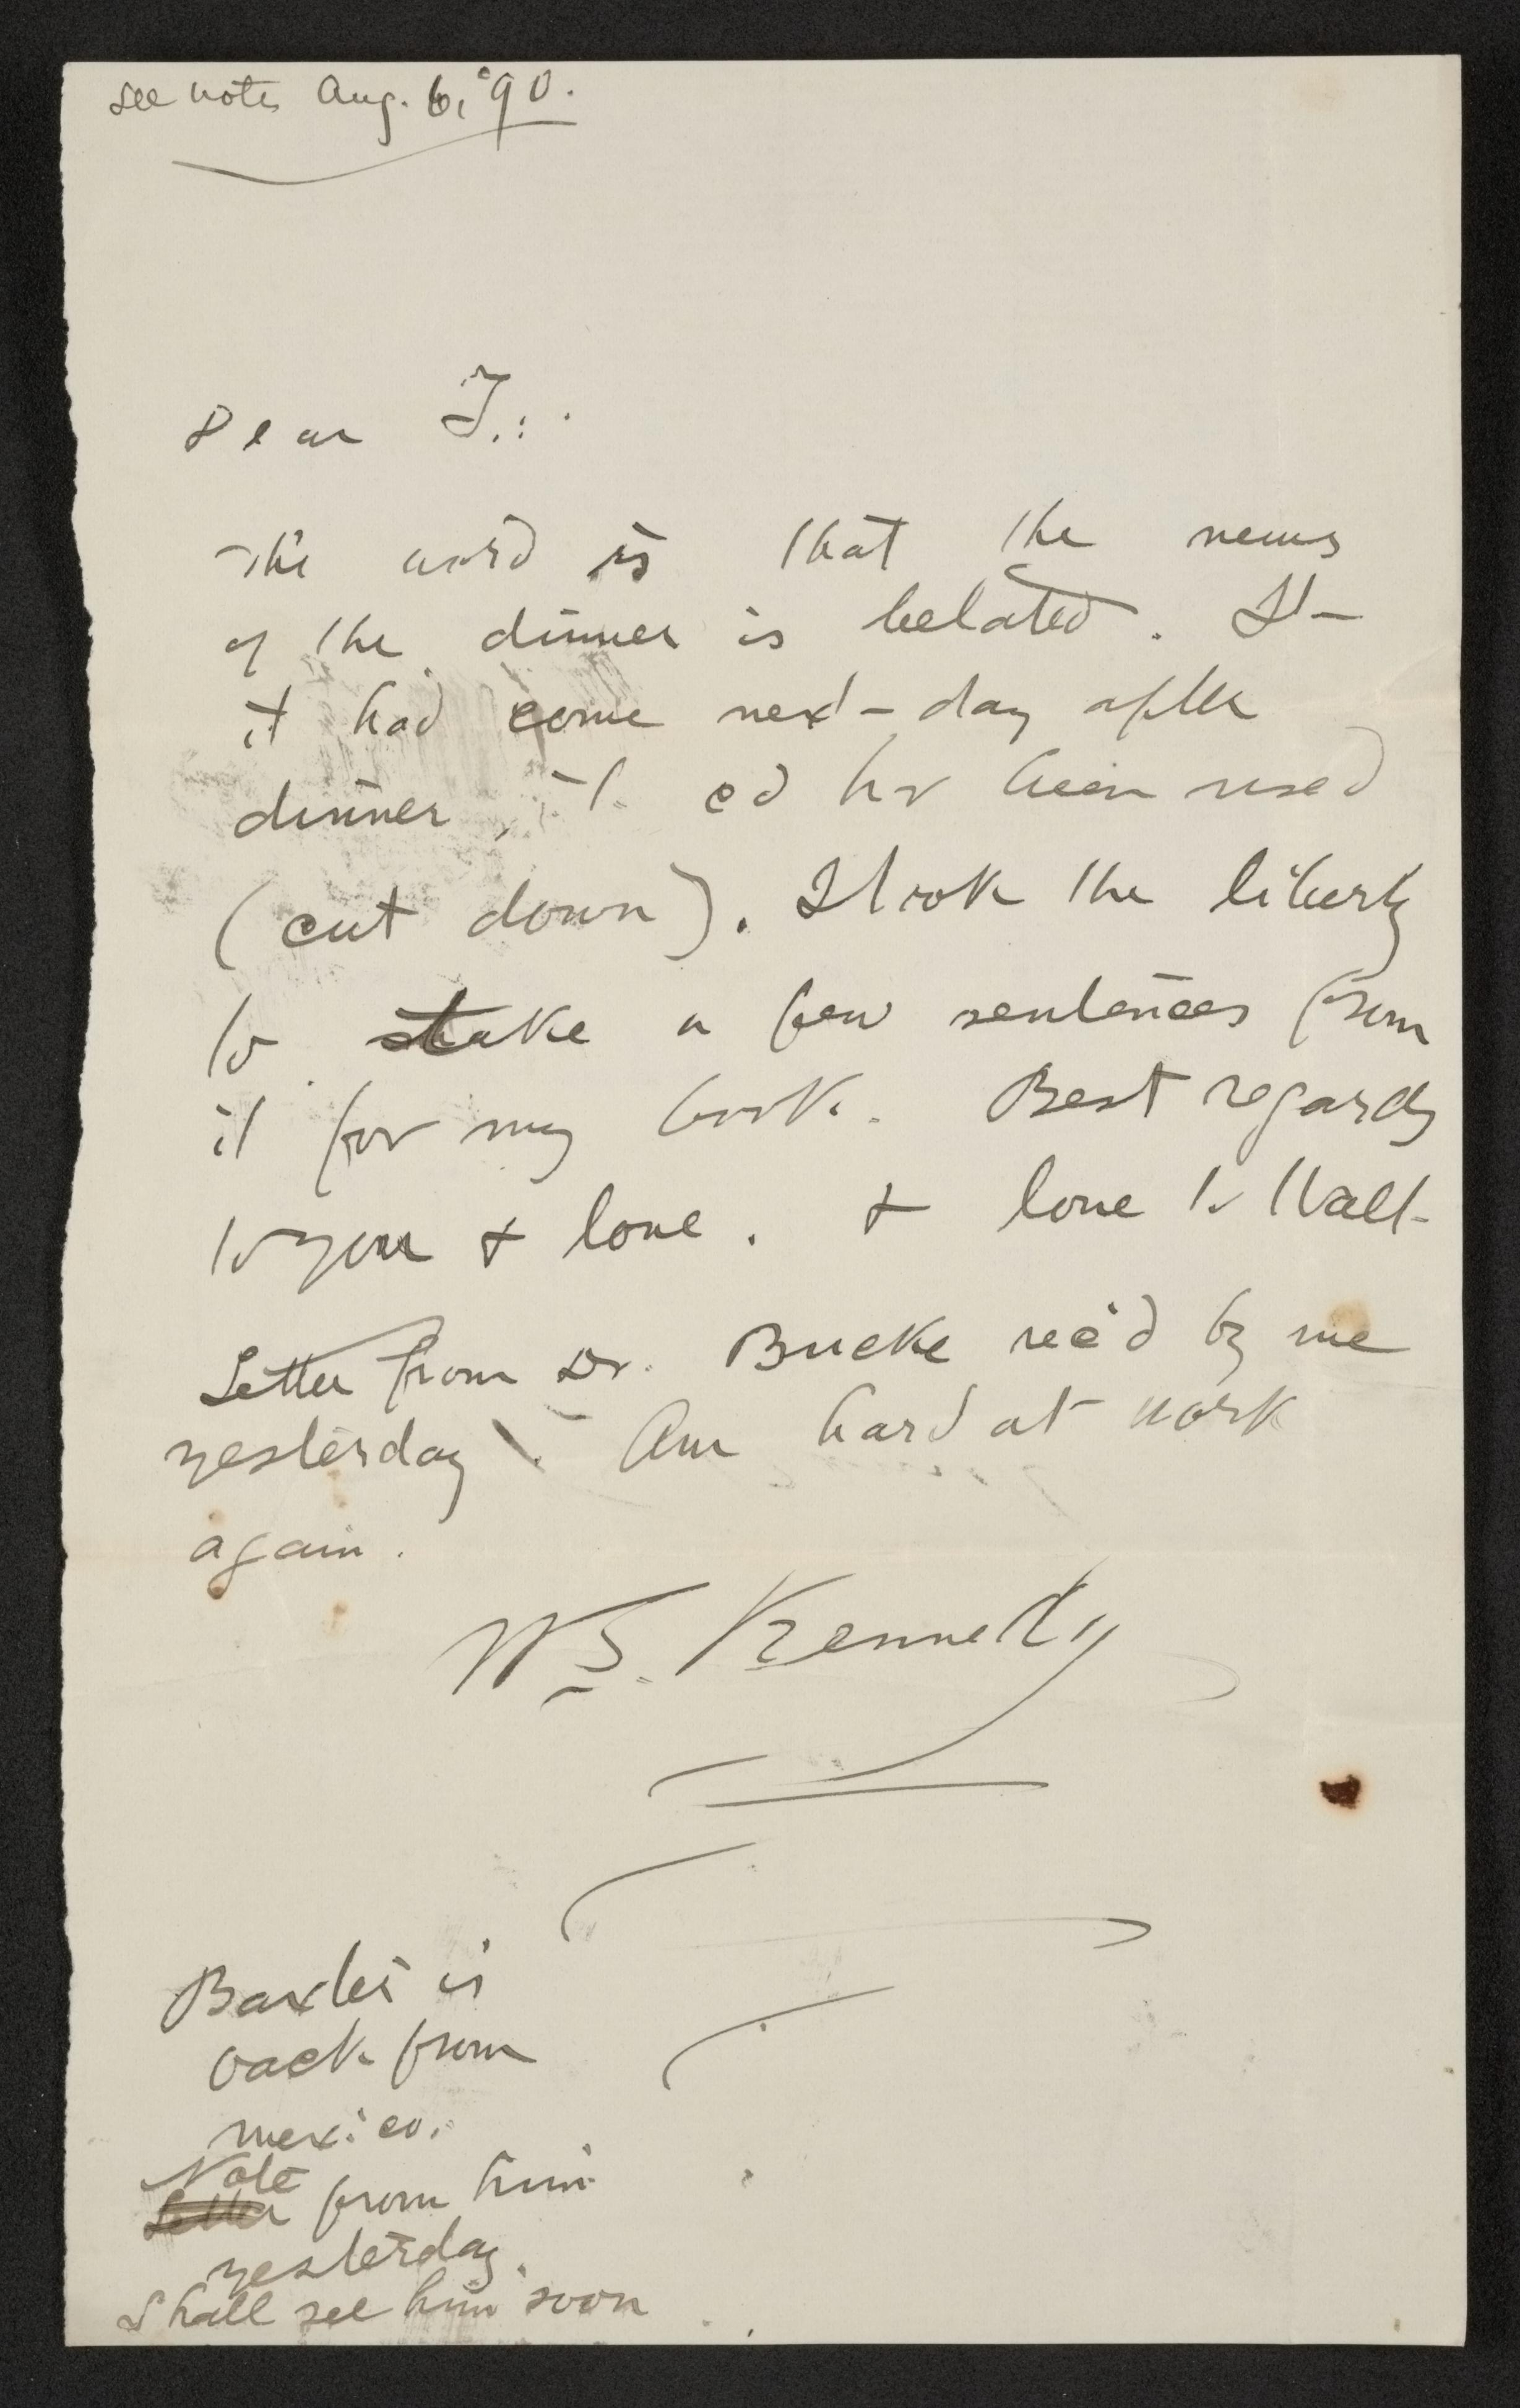 see notes Aug. 6, '90.
Dear T.:
The word is that the news
of the dinner is belated. If
it had come next day after
dinner, it cd hv been used
(cut down). I took the liberty
to take a few sentences from
it for my book. Best regards
to you & love. & love to Walt
Letter from Dr. Bucke rec'd by me
yesterday. Am hard at work
again.
W S. Kennedy
Baxter is
back from
mexico.
Note
Letter from him
yesterday.
Shall see him soon